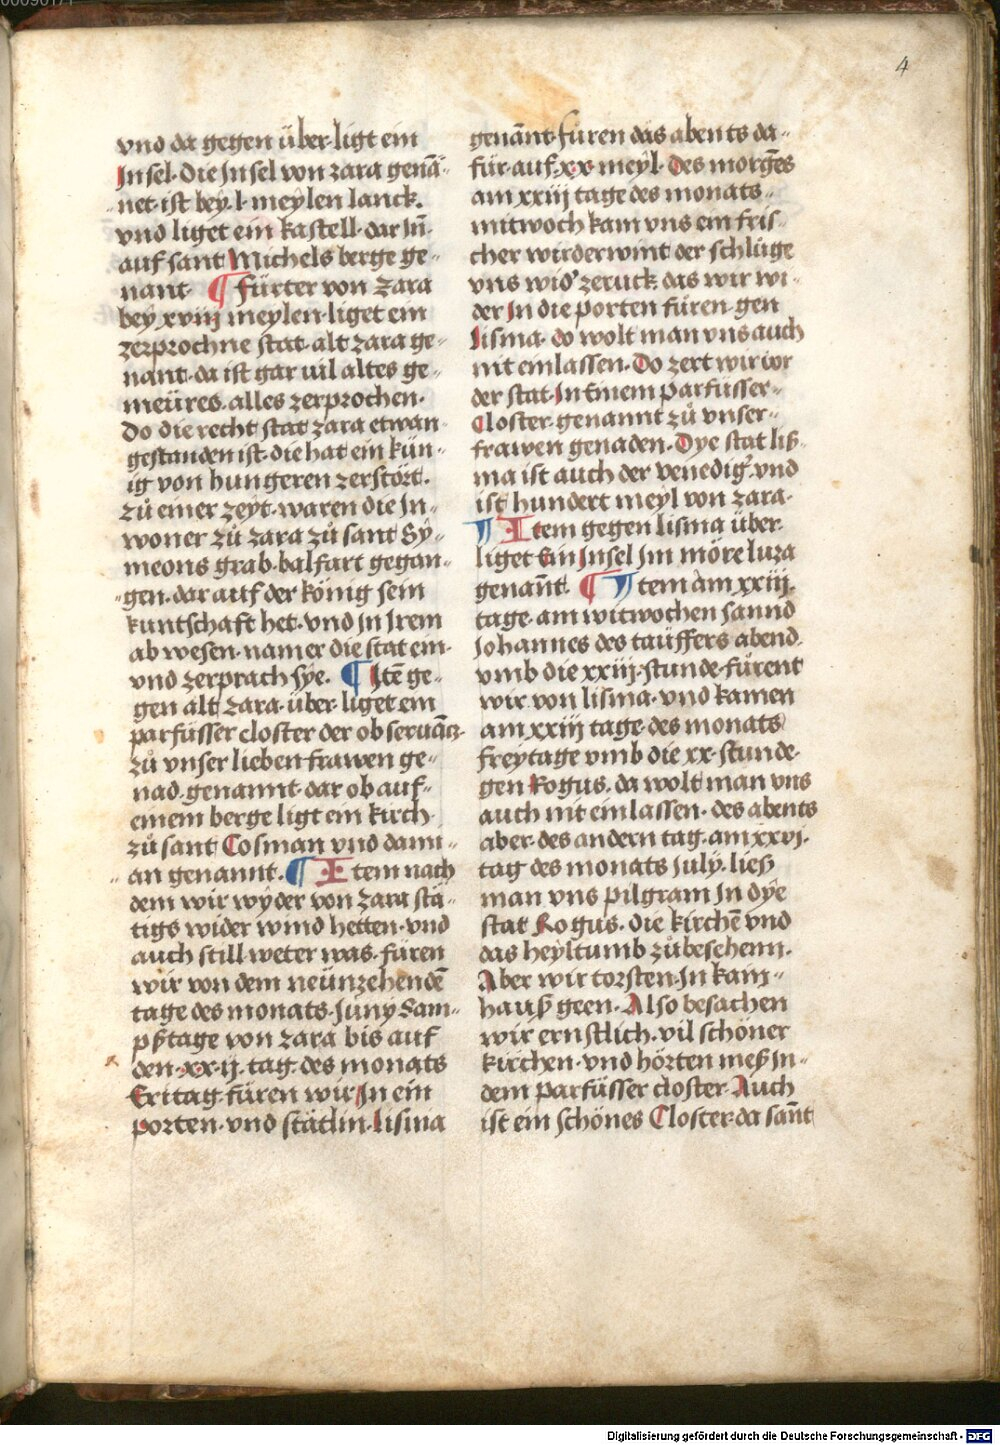 4
vnd da gegen über ligt ein
Insel· Die Insel von zara genā-
net ist bey· l· meylen lanck.
vnd liget ein kastell· dar Iñ·
auf sant Michels berge ge-
nant· ¶ fürter von zara
bey xviij meylen· liget ein
zerprochne stat· alt zara ge-
nant· da ist gar uil altes ge-
meüres· alles zerprochen·
Do die recht stat zara etwan
gestanden ist· die hat ein kün-
ig von hungeren zerstört·
zů einer zeyt· waren die In-
woner zů zara zů sant Sy-
meons grab· balfart gegan-
gen· dar auf der könig sein
kuntschaft het· vnd in Irem
abwesen· namer die stat ein·
vnd zerprach sye· ¶ Itē ge-
gen alt zara· über· liget ein
parfüsser closter der obseruāncz·
zů vnser lieben frawen ge-
nad· genannt· dar ob auf-
einem berge ligt ein kirch
zů sant Cosman vnd dami-
an genannt· ¶ Item nach
dem wir wyder von zara stä-
tigs wider wind hetten· vnd
auch still weter was· füren
wir von dem neünzehendē
tage des monats· Juny Sam-
pßtage von zara bis auf
den· xxij· tag· des monats
Eritag· füren wir In ein
porten· vnd stätlin· lisina
genāñt· füren das abents da-
für· auf· xx· meyl· Des morgēs
am xxiij tage des monats·
mitwoch kam vns ein fris-
cher wirderwint der schlüge
vns wid' zeruck das wir wi-
der In die porten füren· gen
lisina· do wolt man vns auch
nit einlassen· Do zert wir vor
der stat· In Einem parfüsser-
Closter· genannt zů vnser-
frawen genaden· Dye stat liß-
ma ist auch der venedig' vnd
ist hundert meyl von zara·
¶ Item gegen lisina über·
liget Ein Insel Im möre luza
genañt· ¶ Item am xxiij·
tage· am witwochen sannd
Johannes des tauffers abend·
vmb die xxiij· stunde· fürent
wir von lisina· vnd kamen
am xxiij tage· des monats
freytage vmb die xx· stunde·
gen Rogus· da wolt man vns
auch nit einlassen· des abents
aber· des andern tag· am xxvj·
tag des monats July· ließ
man vns pilgram In dye
stat Rogus· die kirchē vnd
das heyltumb zůbeschenn·
Aber wir torsten· In kain-
hauß geen· Also besachen
wir ernstlich· vil schöner
kirchen· vnd hörten meß In-
dem parfüsser closter· Auch
ist ein schönes Closter· da sañt
Digitalisierung gefördert durch die Deutsche Forschungsgemeinschaft - DFG